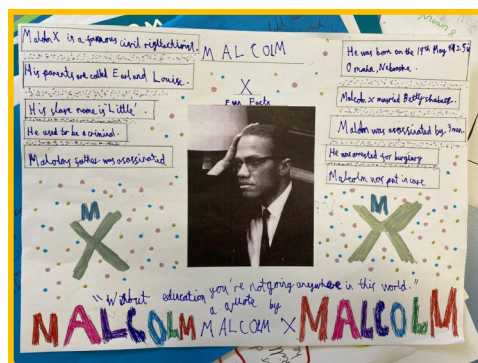 MALCOLM
X
Fun Facts
Malcolm X is a famous civil rights activist.
His parents are called Earl and Louise.
His slave name is 'Little'.
He used to be a criminal.
Malcolms father was assassinated
He was born on the 19th May 1925 in
Omaha, Nebraska.
Malcolm x married Betty shabazz.
Malcolm was assassinated by 3 men.
He was arrested for burglary
Malcolm was put in care
M
X
M
X
"Without education you're not going anywhere in this world."
a quote by
MALCOLM X
MALCOLM
MALCOLM